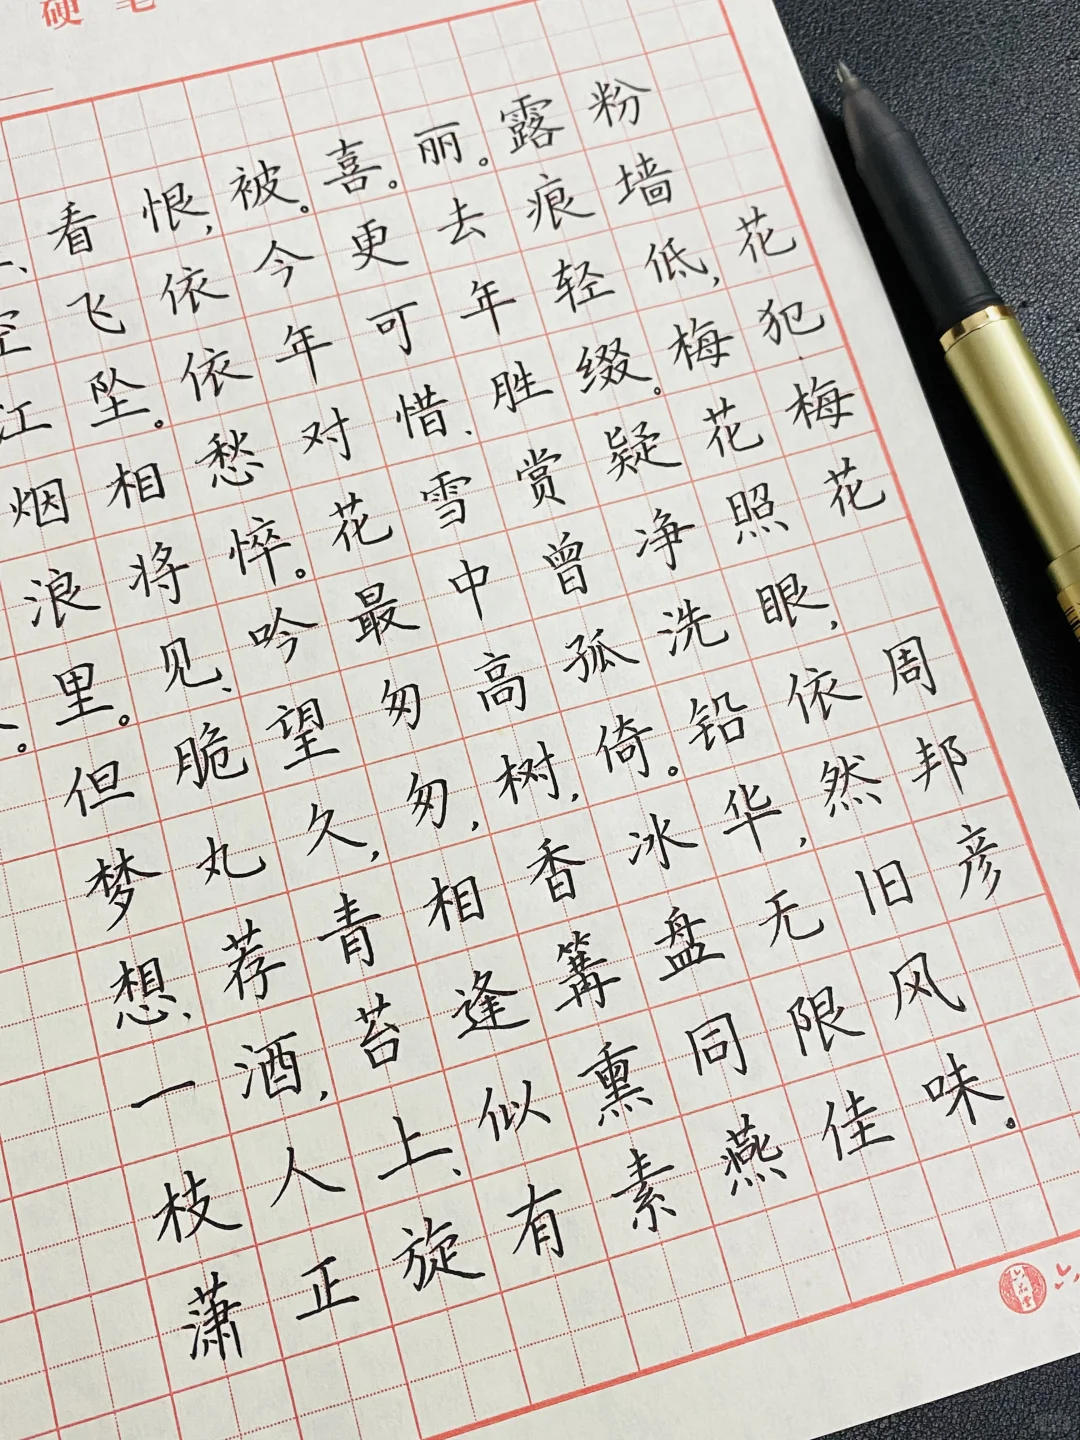 硬笔
花犯.梅花 周邦彦
粉墙低,梅花照眼,依然旧风味。
露痕轻缀。疑净洗铅华,无限佳
丽。去年胜赏曾孤倚。冰盘同燕
喜。更可惜、雪中高树,香篝熏素
被。今年对花最匆匆,相逢似有
恨,依依愁悴。吟望久,青苔上、旋
看飞坠。相将见、脆丸荐酒,人正
空江烟浪里。但梦想、一枝潇
六品堂